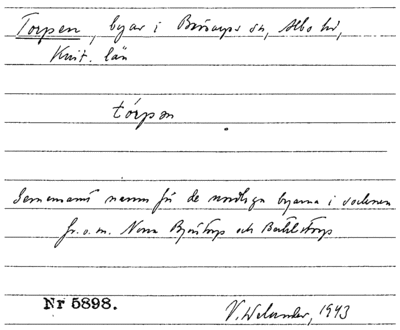 Torpen, byar i Brösarps sn, Albo hd,
Krist. län
tórpən
Gemensamt namn för de nordliga byarna i socknen
fr. o. m. Norra Björstorp och Bertilstorp
Nr 5898.
V. Welander, 1943